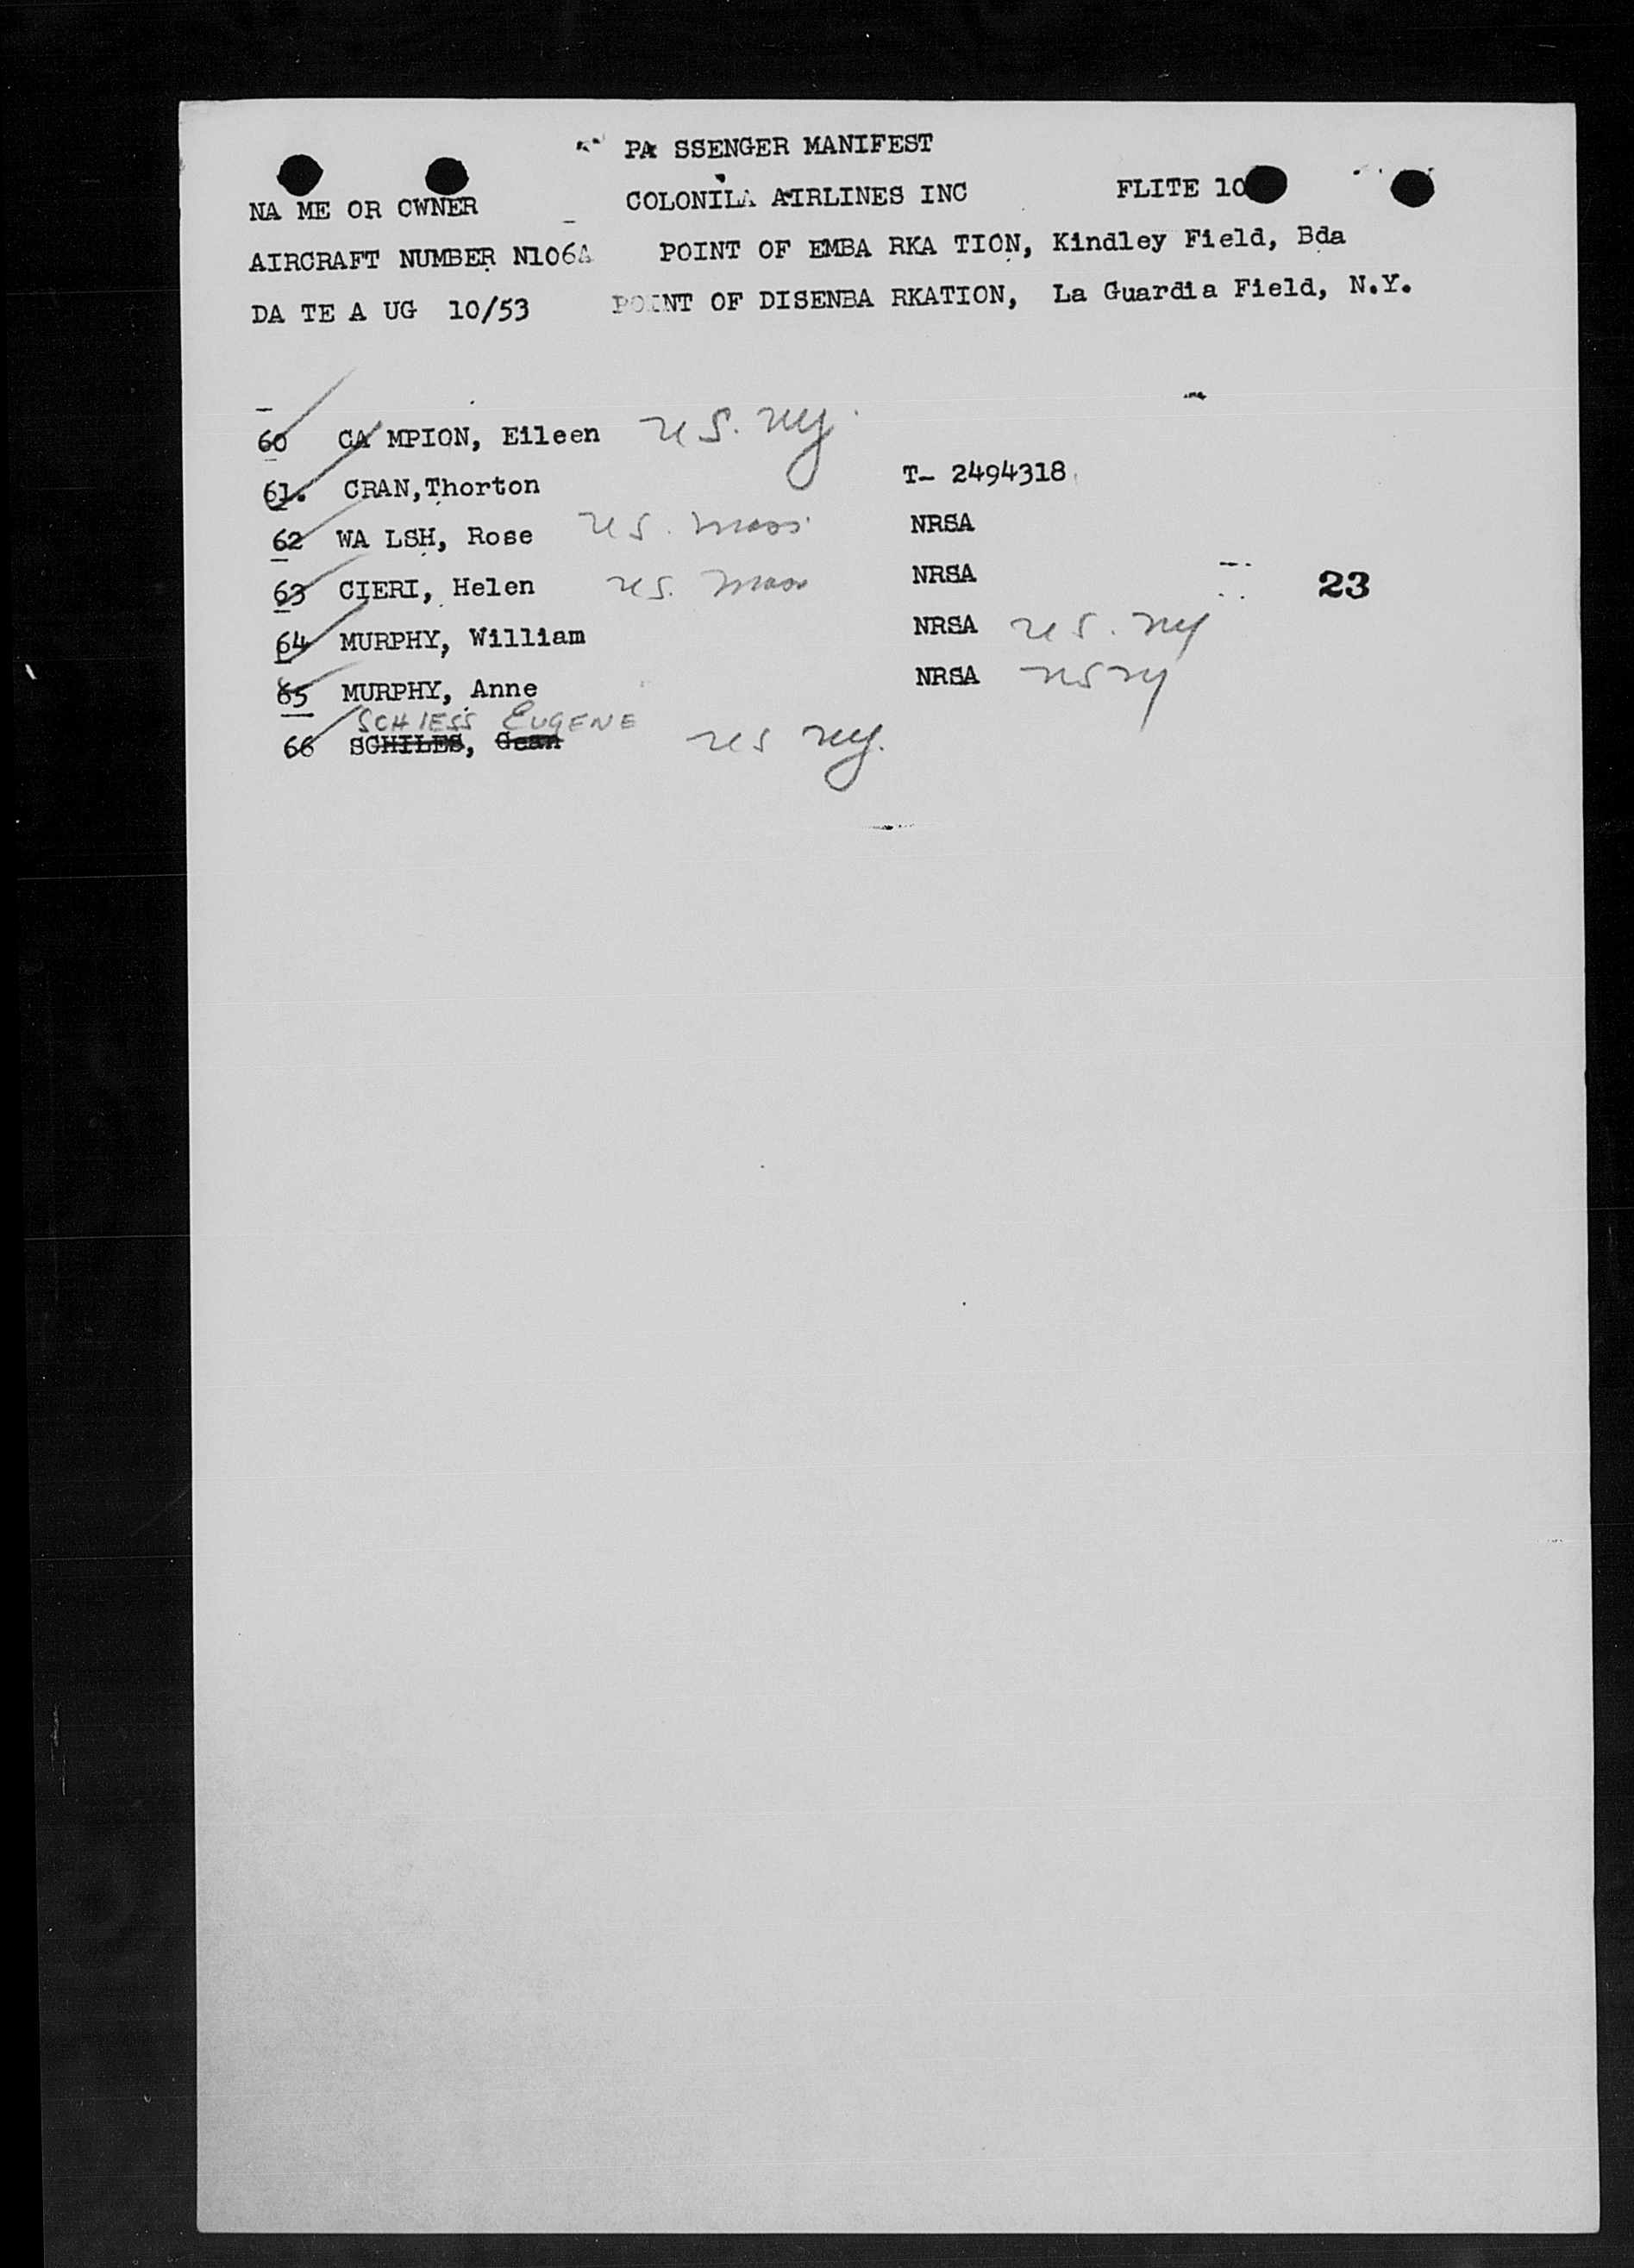 PA SSENGER MANIFEST
NA ME OR OWNER COLONILA AIRLINES INC FLITE 10
AIRCRAFT NUMBER N106A POINT OF EMBA RKA TION, Kindley Field, Bda
DA TE A UG 10/53 POINT OF DISENBA RKATION, La Guardia Field, N.Y.
60 CA MPION, Eileen US. NY.
61. CRAN,Thorton T- 2494318
62 WA LSH, Rose US. Mass. NRSA
63 CIERI, Helen US. Mass NRSA
23
64 MURPHY, William NRSA US. NY
65 MURPHY, Anne NRSA US NY
SCHIESS EUGENE
66 SCHILES, Gean US NY.